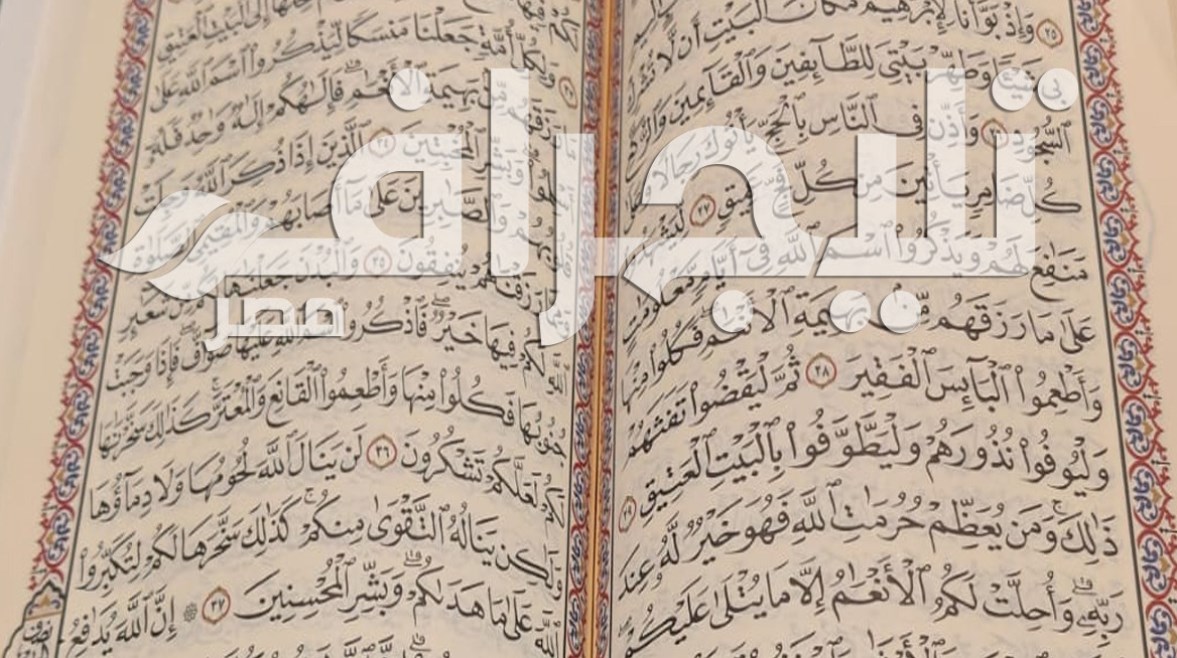 ٢٥ وَإِذْ بَوَّأْنَا لِإِبْرَٰهِيمَ مَكَانَ ٱلْبَيْتِ أَن لَّا
بِى شَيْـًٔا وَطَهِّرْ بَيْتِىَ لِلطَّآئِفِينَ وَٱلْقَآئِمِينَ وَٱلرُّكَّعِ
ٱلسُّجُودِ ٢٦ وَأَذِّن فِى ٱلنَّاسِ بِٱلْحَجِّ يَأْتُوكَ رِجَالًا
كُلِّ ضَامِرٍ يَأْتِينَ مِن كُلِّ فَجٍّ عَمِيقٍ ٢٧ لِّيَشْهَدُوا۟
مَنَٰفِعَ لَهُمْ وَيَذْكُرُوا۟ ٱسْمَ ٱللَّهِ فِىٓ أَيَّامٍ مَّعْلُومَٰتٍ
عَلَىٰ مَا رَزَقَهُم مِّنۢ بَهِيمَةِ ٱلْأَنْعَٰمِ فَكُلُوا۟ مِنْهَا
وَأَطْعِمُوا۟ ٱلْبَآئِسَ ٱلْفَقِيرَ ٢٨ ثُمَّ لْيَقْضُوا۟ تَفَثَهُمْ
وَلْيُوفُوا۟ نُذُورَهُمْ وَلْيَطَّوَّفُوا۟ بِٱلْبَيْتِ ٱلْعَتِيقِ ٢٩
ذَٰلِكَ وَمَن يُعَظِّمْ حُرُمَٰتِ ٱللَّهِ فَهُوَ خَيْرٌ لَّهُۥ عِندَ
رَبِّهِۦ وَأُحِلَّتْ لَكُمُ ٱلْأَنْعَٰمُ إِلَّا مَا يُتْلَىٰ عَلَيْكُمْ
إِلَى ٱلْبَيْتِ ٱلْعَتِيقِ
وَلِكُلِّ أُمَّةٍ جَعَلْنَا مَنسَكًا لِّيَذْكُرُوا۟ ٱسْمَ ٱللَّهِ عَلَىٰ
رَزَقَهُم مِّنۢ بَهِيمَةِ ٱلْأَنْعَٰمِ فَإِلَٰهُكُمْ إِلَٰهٌ وَٰحِدٌ فَلَهُۥٓ
وَبَشِّرِ ٱلْمُخْبِتِينَ ٣٤ ٱلَّذِينَ إِذَا ذُكِرَ ٱللَّهُ وَجِلَتْ
وَٱلصَّٰبِرِينَ عَلَىٰ مَآ أَصَابَهُمْ وَٱلْمُقِيمِى ٱلصَّلَوٰةِ
رَزَقْنَٰهُمْ يُنفِقُونَ ٣٥ وَٱلْبُدْنَ جَعَلْنَٰهَا لَكُم مِّن شَعَٰٓئِرِ
فِيهَا خَيْرٌ فَٱذْكُرُوا۟ ٱسْمَ ٱللَّهِ عَلَيْهَا صَوَآفَّ فَإِذَا وَجَبَتْ
جُنُوبُهَا فَكُلُوا۟ مِنْهَا وَأَطْعِمُوا۟ ٱلْقَانِعَ وَٱلْمُعْتَرَّ كَذَٰلِكَ سَخَّرْنَٰهَا
لَكُمْ لَعَلَّكُمْ تَشْكُرُونَ ٣٦ لَن يَنَالَ ٱللَّهَ لُحُومُهَا وَلَا دِمَآؤُهَا
وَلَٰكِن يَنَالُهُ ٱلتَّقْوَىٰ مِنكُمْ كَذَٰلِكَ سَخَّرَهَا لَكُمْ لِتُكَبِّرُوا۟
ٱللَّهَ عَلَىٰ مَا هَدَىٰكُمْ وَبَشِّرِ ٱلْمُحْسِنِينَ ٣٧ ۞ إِنَّ ٱللَّهَ يُدَٰفِعُ
تليجراف
مصر